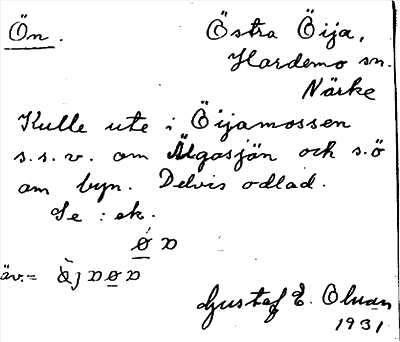 Ön.
Östra Öija,
Hardemo sn.
Närke
Kulle ute i Öijamossen
s.s.v. om Älgasjön och s.ö
om byn. Delvis odlad.
Se : ek.
Gustaf E. Olwan
1931